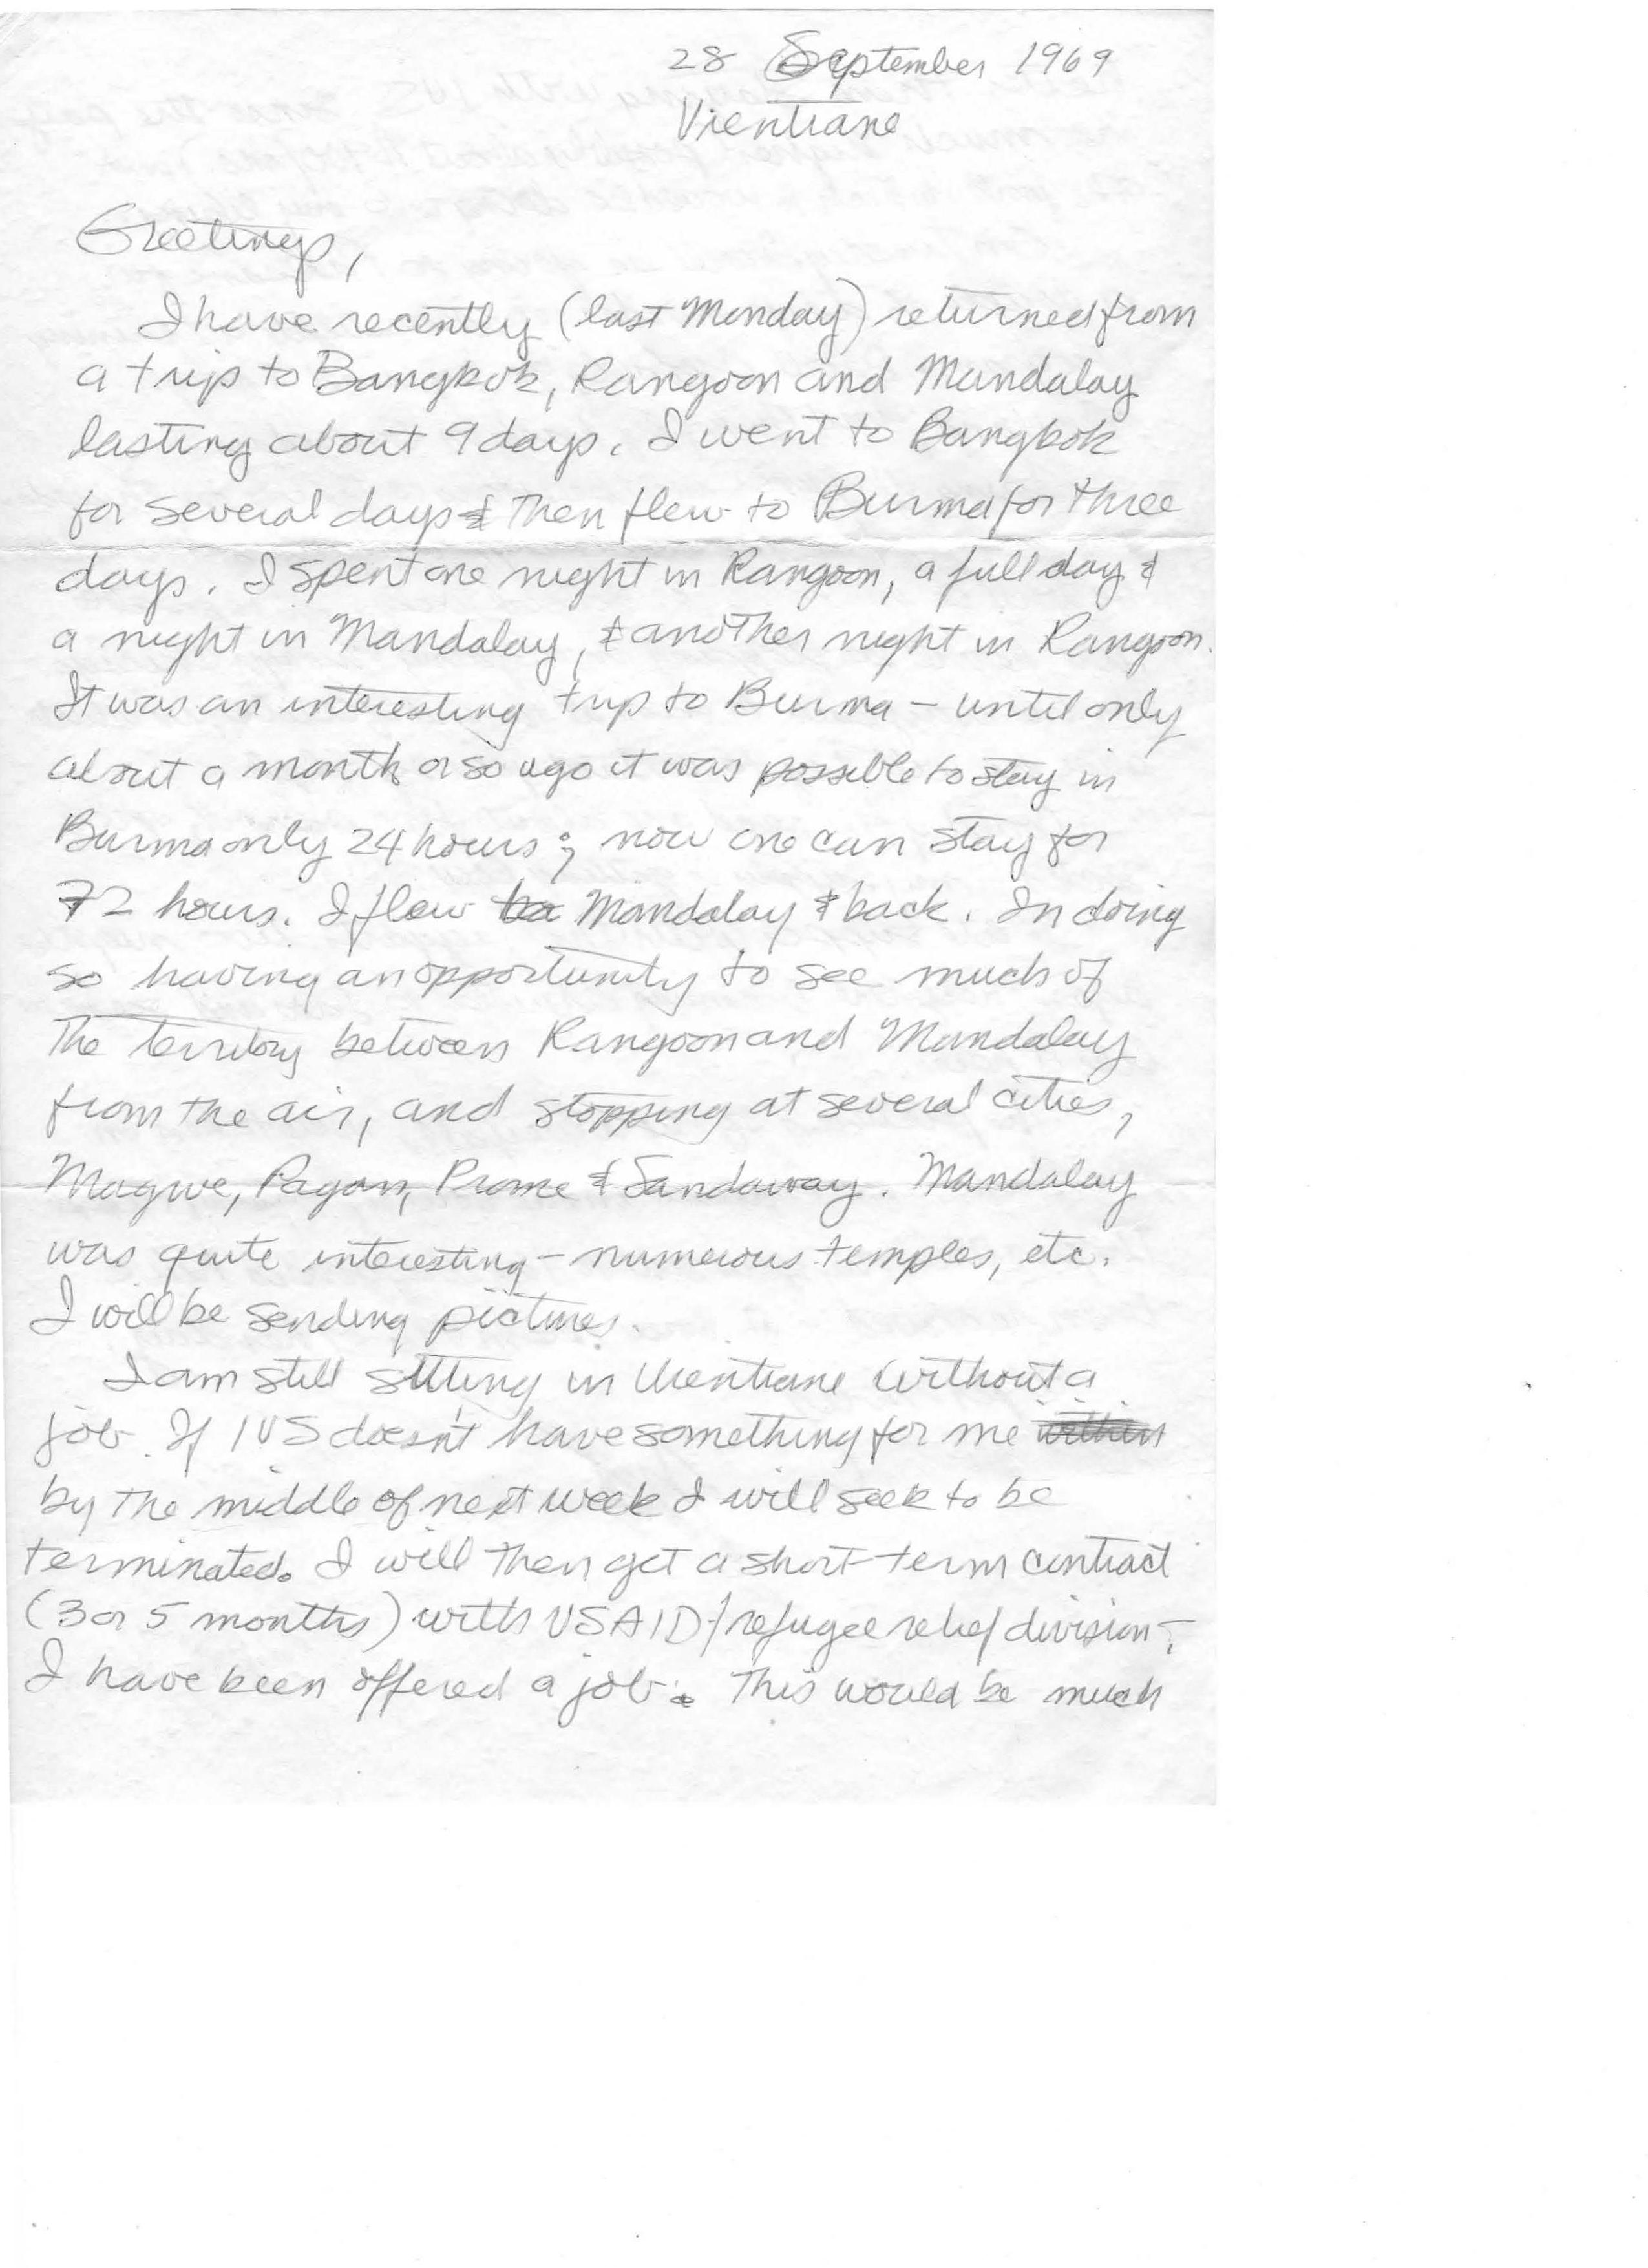 28 September 1969
Vientiane
Greetings,
I have recently (last Monday) returned from
a trip to Bangkok, Rangoon and Mandalay
lasting about 9 days. I went to Bangkok
for several days & then flew to Burma for three
days. I spent one night in Rangoon, a full day &
a night in Mandalay, & another night in Rangoon.
It was an interesting trip to Burma - until only
about a month or so ago it was possible to stay in
Burma only 24 hours; now one can stay for
72 hours. I flew to Mandalay & back. In doing
so having an opportunity to see much of
the territory between Rangoon and Mandalay
from the air, and stopping at several cities,
Magwe, Pagan, Prome & Sandaway. Mandalay
was quite interesting - numerous temples, etc.
I will be sending pictures.
I am still sitting in Vientiane without a
job. If IVS doesn't have something for me within
by the middle of next week I will seek to be
terminated. I will then get a short-term contract
(3 or 5 months) with USAID/refugee relief division -
I have been offered a job. This would be much